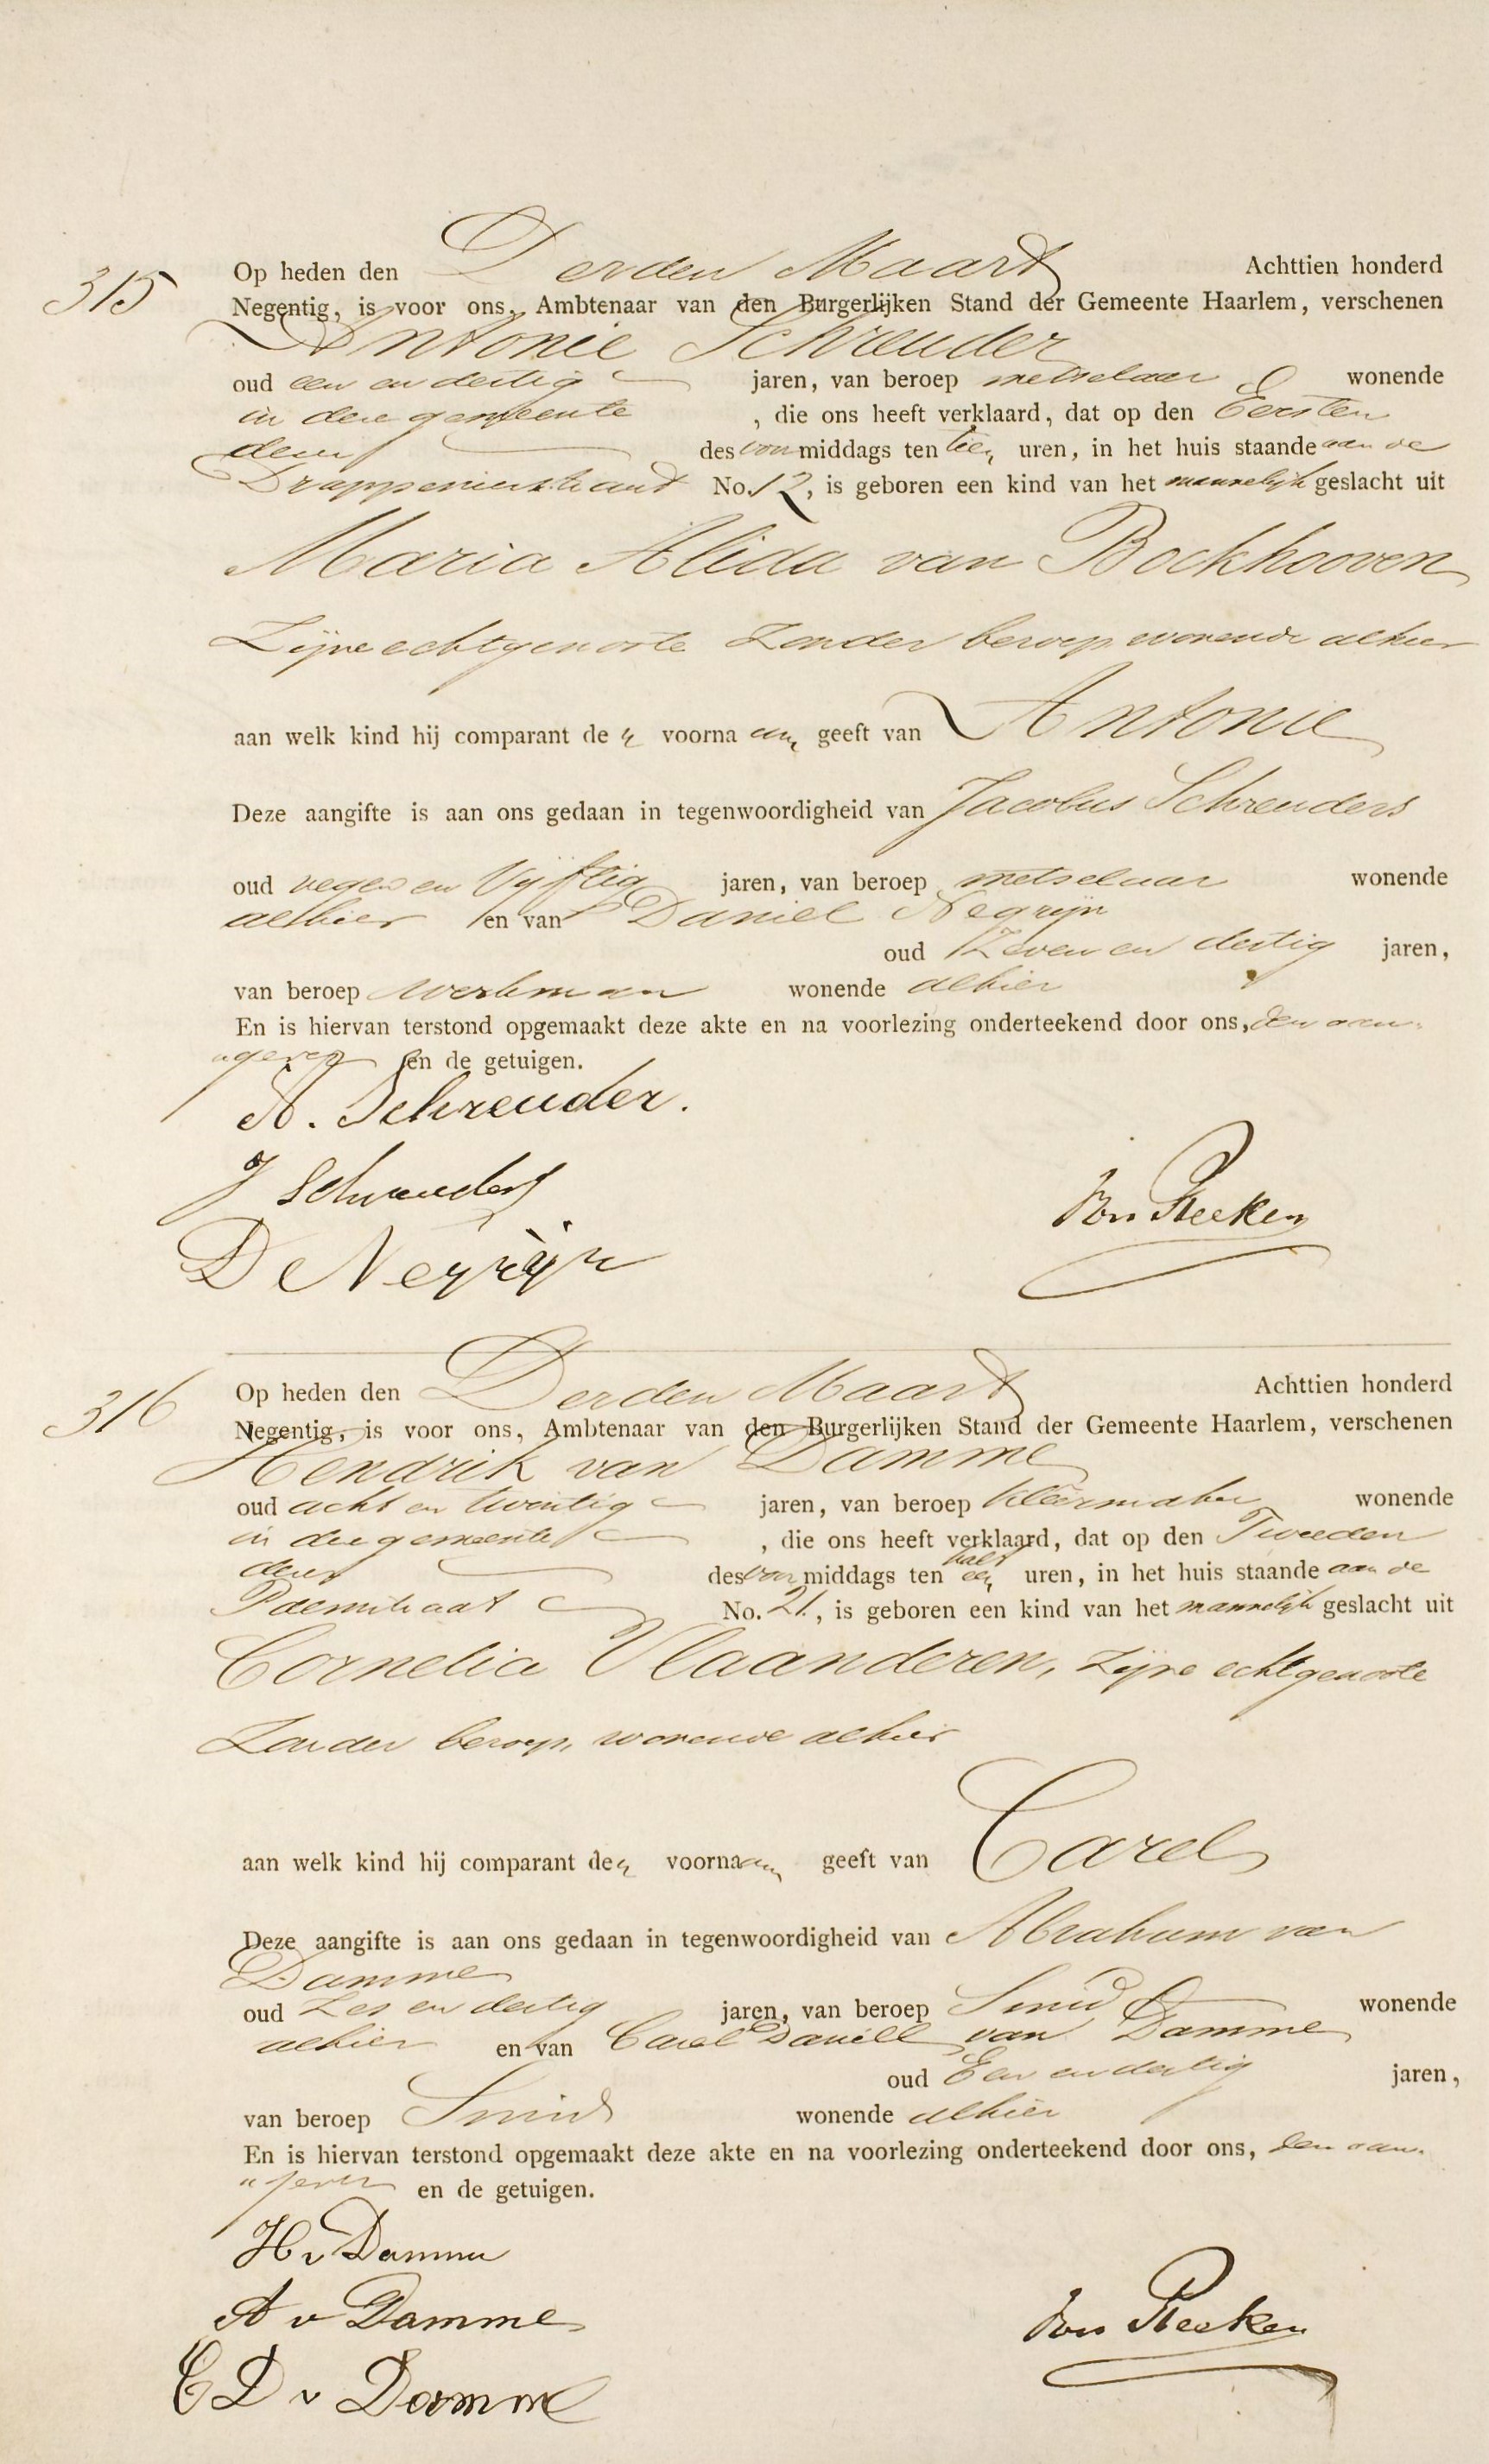 315
Op heden den Derden Maart Achttien honderd
Negentig, is voor ons, Ambtenaar van den Burgerlijken Stand der Gemeente Haarlem, verschenen
Antonie Schreuder
oud een en dertig jaren, van beroep metselaar wonende
in deze gemeente , die ons heeft verklaard, dat op den Eersten
dezer des voor middags ten tien uren, in het huis staande aan de
Drappenierstraat No. 12, is geboren een kind van het mannelijk geslacht uit
Maria Alida van Bockhooven
Zijne echtgenoote Zonder beroep wonende alhier
aan welk kind hij comparant de n voorna am geeft van Antonie
Deze aangifte is aan ons gedaan in tegenwoordigheid van Jacobus Schreuders
oud negen en Vijftig jaren, van beroep metselaar wonende
alhier en van Daniel Negrijn
oud Zeven en dertig jaren,
van beroep werkman wonende alhier
En is hiervan terstond opgemaakt deze akte en na voorlezing onderteekend door ons, den aan-
"gever en de getuigen.
A. Schreuder.
J Schreuders
D Negrijn
316
Op heden den Derden Maart Achttien honderd
Negentig, is voor ons, Ambtenaar van den Burgerlijken Stand der Gemeente Haarlem, verschenen
Hendrik van Damme
oud acht en twintig jaren, van beroep kleermaker wonende
in deze gemeente , die ons heeft verklaard, dat op den Tweeden
dezer des voor middags ten half een uren, in het huis staande aan de
No. 21, is geboren een kind van het mannelijk geslacht uit
Cornelia Vlaanderen, Zijne echtgenoote
Zonder beroep, wonende alhier
aan welk kind hij comparant den voornaam geeft van Carel
Deze aangifte is aan ons gedaan in tegenwoordigheid van Abraham van
Damme
oud Zes en dertig jaren, van beroep Smid wonende
alhier en van Carel Daniell van Damme
oud Een en dertig jaren,
van beroep Smid wonende alhier
En is hiervan terstond opgemaakt deze akte en na voorlezing onderteekend door ons, den aan-
"gever en de getuigen.
H v Damme
A v Damme
C D v Damme